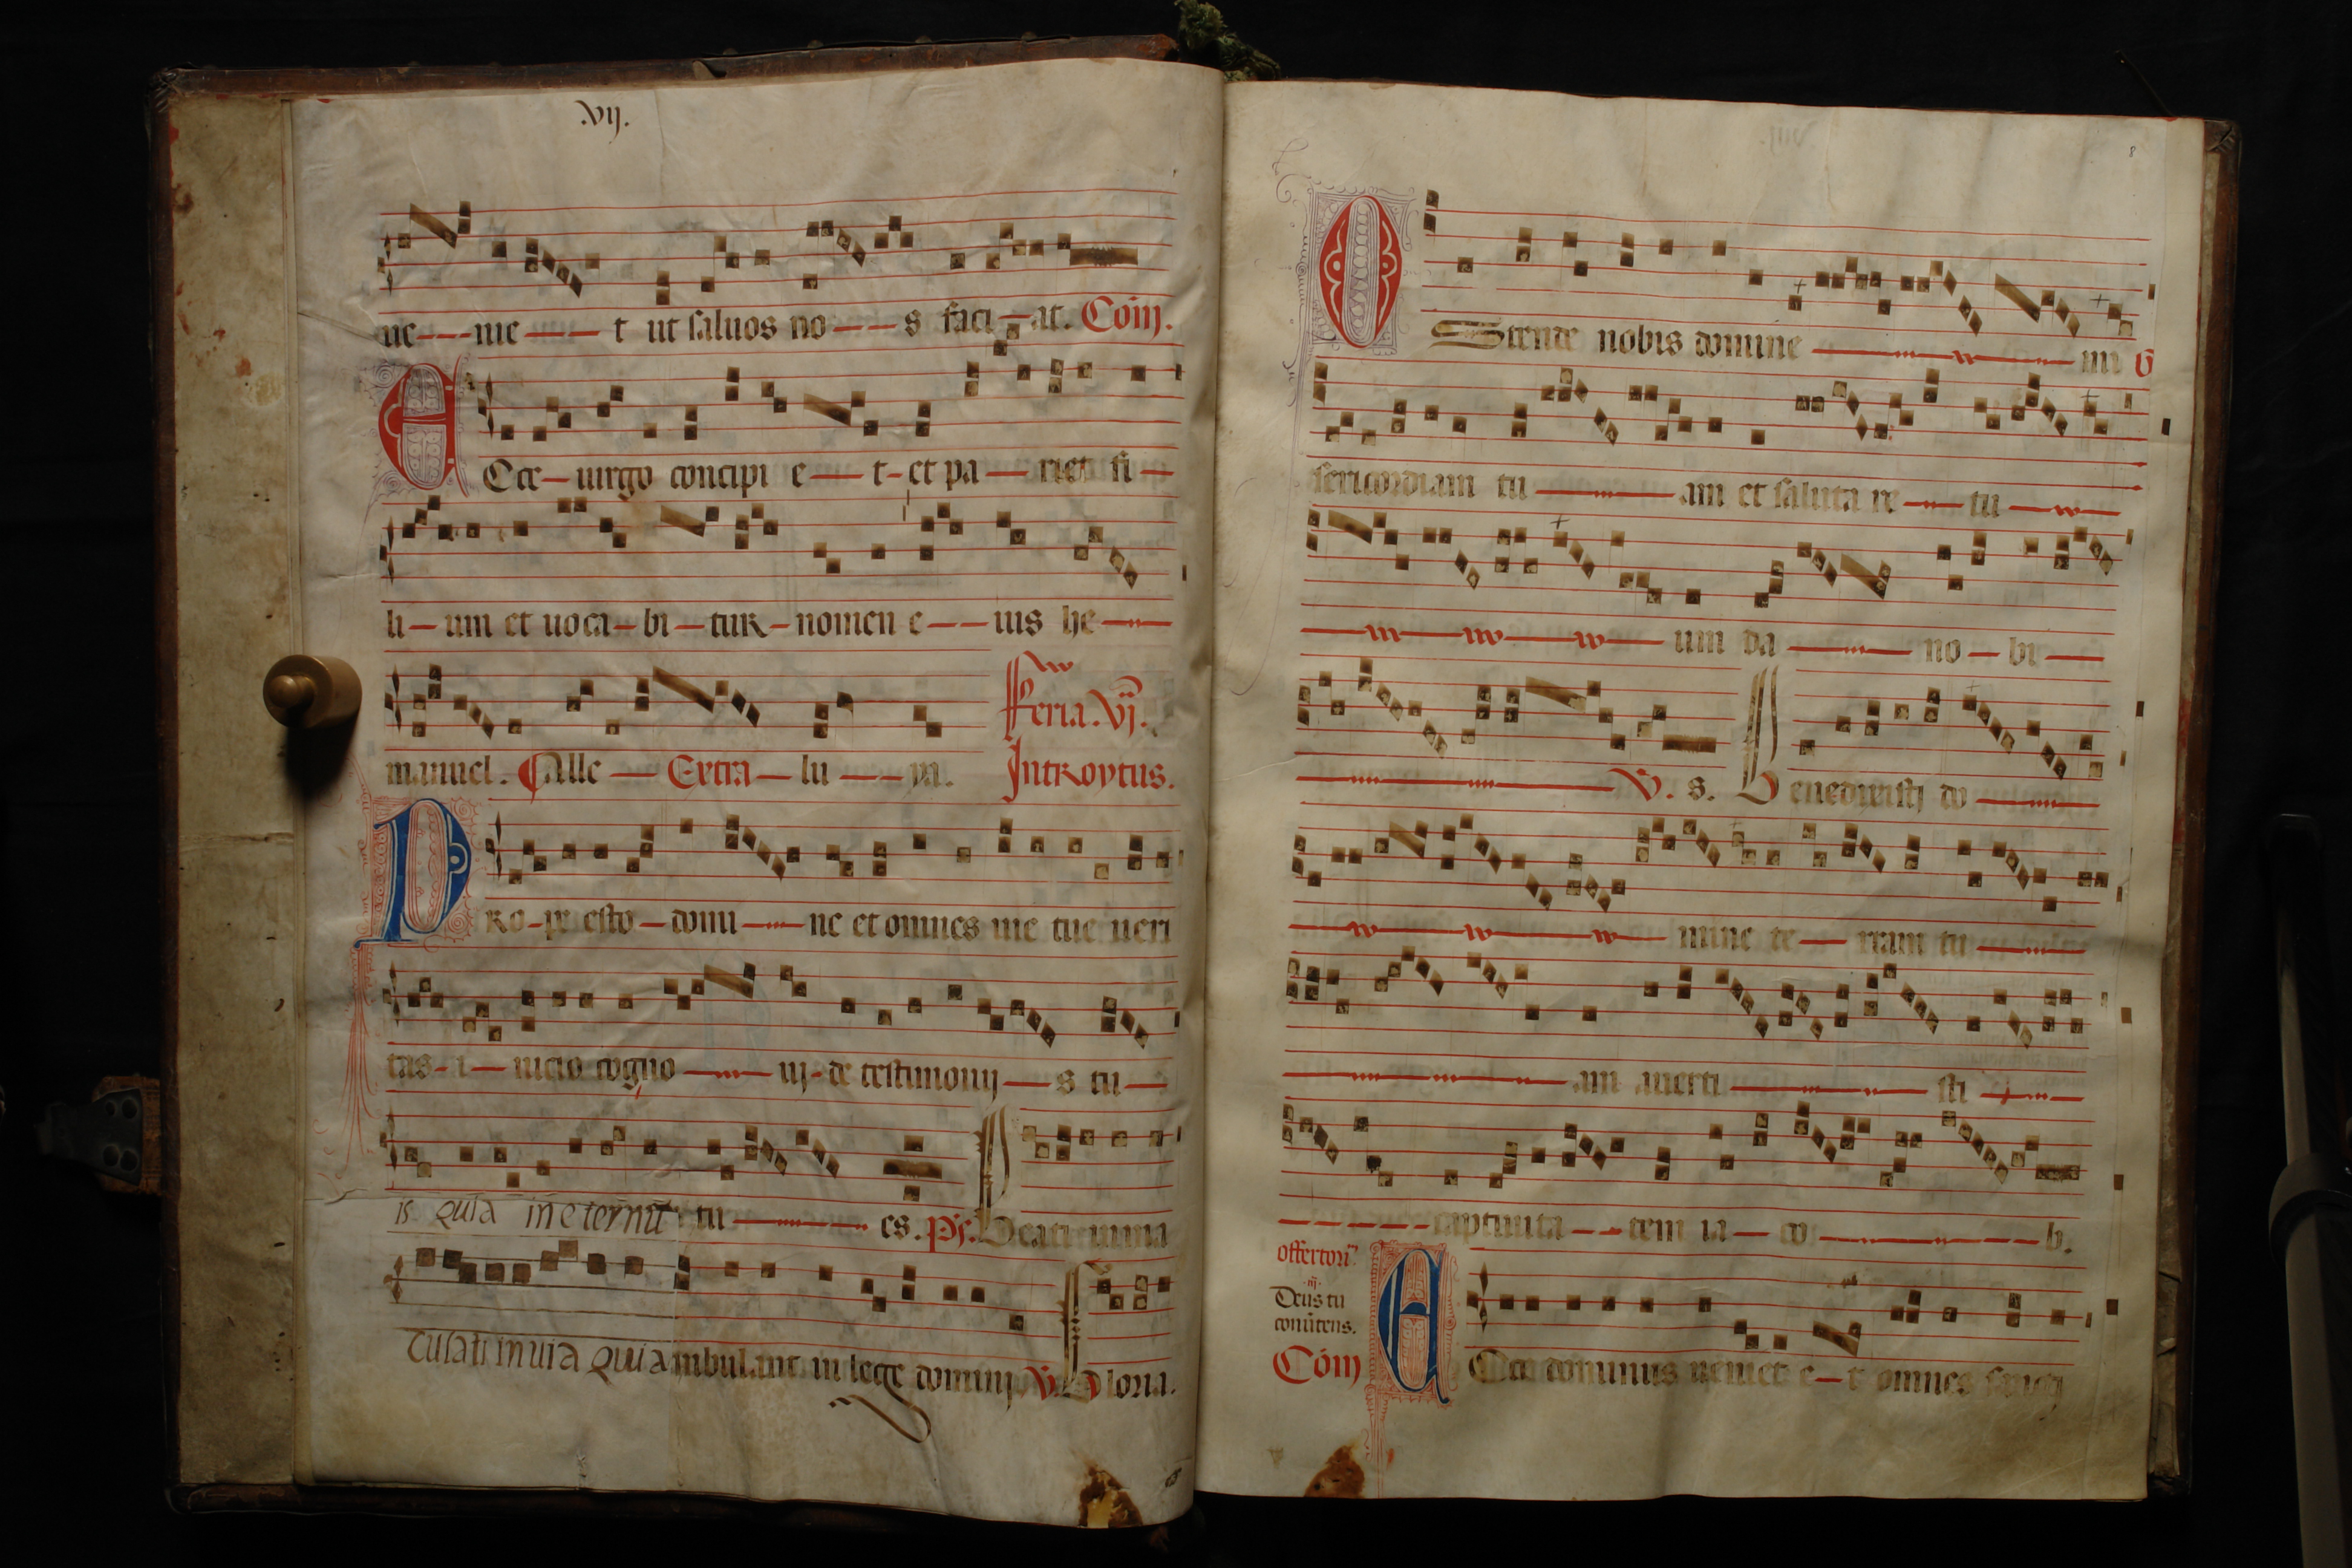 .vij.
ue---nie---t ut saluos no---s faci-at. Com̄.
Ecce-uirgo concipi e--t-et pa--riet fi-
li-um et uoca-bi-tur-nomen e---ius he--
manuel. Alle--Extra-lu---ya.
Feria .vj.
Introytus.
Pro-pe esto-domi---ne et omnes uie tue ueri
tas-i-nicio cogno---uj-de testimonij--s tu-
is quia in eternū tu---es. Ps. Beati imma
culati in uia qui ambulant in lege dominj V. Gloria.
8
Ostende nobis domine --- mi 6
sericordiam tu --- am et saluta re -- tu --
--- um da --- no-bi--
--- V. s. Benedixisti do ---
--- mine te-rram tu ---
--- am auerti --- sti ---
--- captiuita--tem ia-co --- b.
offertoriū
Deus tu
conuertens.
Com̄ Ecce dominus ueniet e-t omnes sancti